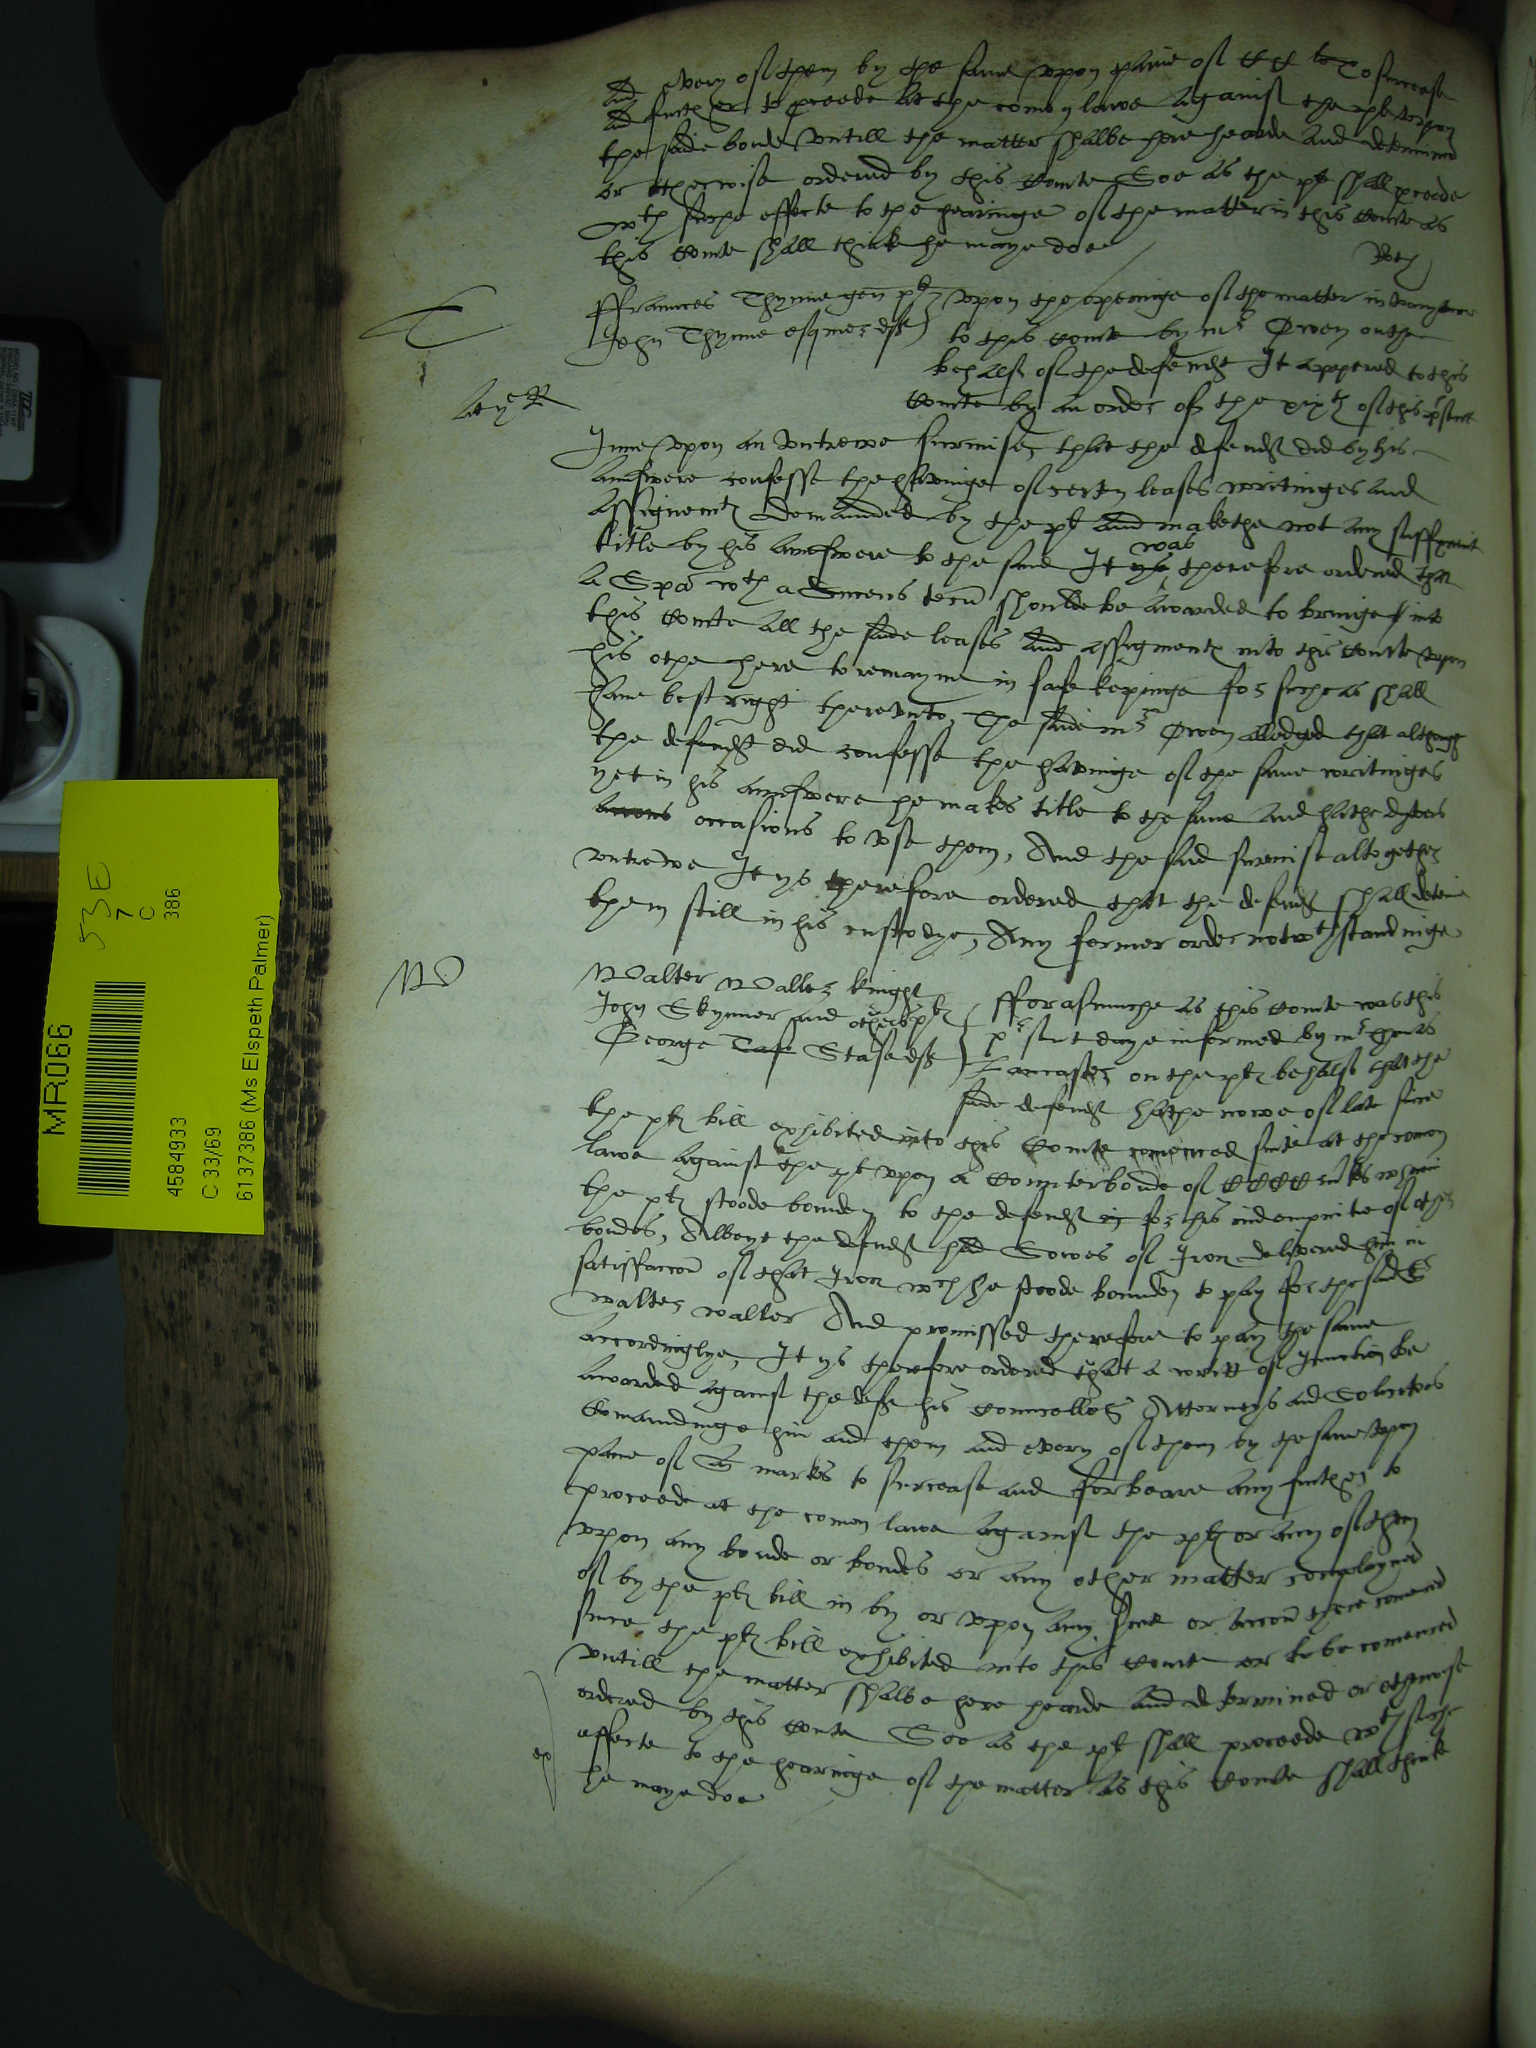 and every of them by the same upon paine of CC li to surcease
and further to proceede at the comon lawe against the plt upon
the saide bonde untill the matter shalbe here hearde and determined
or otherwise ordered by this Courte Soe as the plt shall proceede
wth suche effecte to the hearinge of the matter in this Courte as
this Courte shall thinke he maye doe
T
ffraunces Thynne gen plt
John Thynne esquier deft
upon the openinge of the matter in
to this Courte by mr Owen on the
behalf of the defendt It appered to this
Courte by an order of the xixth of this pesent
June upon an untrewe surmise that the defendt did by his
answere confesse the havinge of certen leases writinges and
assignemts demaunded by the plt and makethe not any sufficient
title by his answere to the same It ys was therefore ordered that
a Spa wth a Duces tecum shoulde be awarded to bringe into
this Courte all the saide leases and assignments into this Courte upon
his othe here to remayne in safe kepinge for suche as shall
have best right thereunto, The saide mr Owen alledged that althoughe
the defendt did confesse the havinge of the same writinges
yet in his answere he makes title to the same and hathe dyvers
occasions to use them, And the said surmise altogether
untrewe It ys therefore ordered that the defendt shall deteine
them still in his custodye, Any former order notwthstandinge
W
Walter Waller knight
John Skynner and others plts
George Tase Stase deft
fforasmuche as this Courte was this
pesent daye informed by mr
Lancaster on the plts behalf that the
saide defendt hathe nowe of late since
the plts bill exhibited into this Courte comenced suite at the comon
lawe against the plt upon a Counterbonde of CCCC mrkes wherein
the plts stoode bounden to the defendt in for his indempnite of other
bondes, Albeyt the defendt had Sowes of Iron delivered him in
satisfaccon of that Iron wch he stoode bounden to pay for the said Sr
walter waller And promissed therefore to pay the same
accordinglye, It ys therefore ordered that a writt of Iniunction be
awarded against the deft his Councellors Attorneys and Solicitors
Comaundinge him and them and every of them by the same upon
paine of markes to surcease and forbeare any further to
proceede at the comon lawe against the plts or any of them
upon any bonde or bondes or any other matter complayned
of by the plts bill in by or upon any suite or accon there comenced
since the plts bill exhibited into this Courte or to be comenced
untill the matter shalbe here hearde and determined or otherwise
ordered by this Courte Soe as the plt shall proceede wth suche
effecte to the hearinge of the matter as this Courte shall thinke
he maye doe
ex
53E
7
C
386
MR066
4584933
C 33/69
6137386 (Ms Elspeth Palmer)